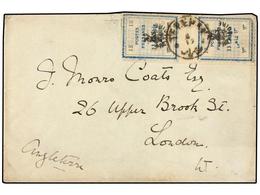 J. Monro Coats Esq
26 Upper Brook St.
London.
W.
Angleterre